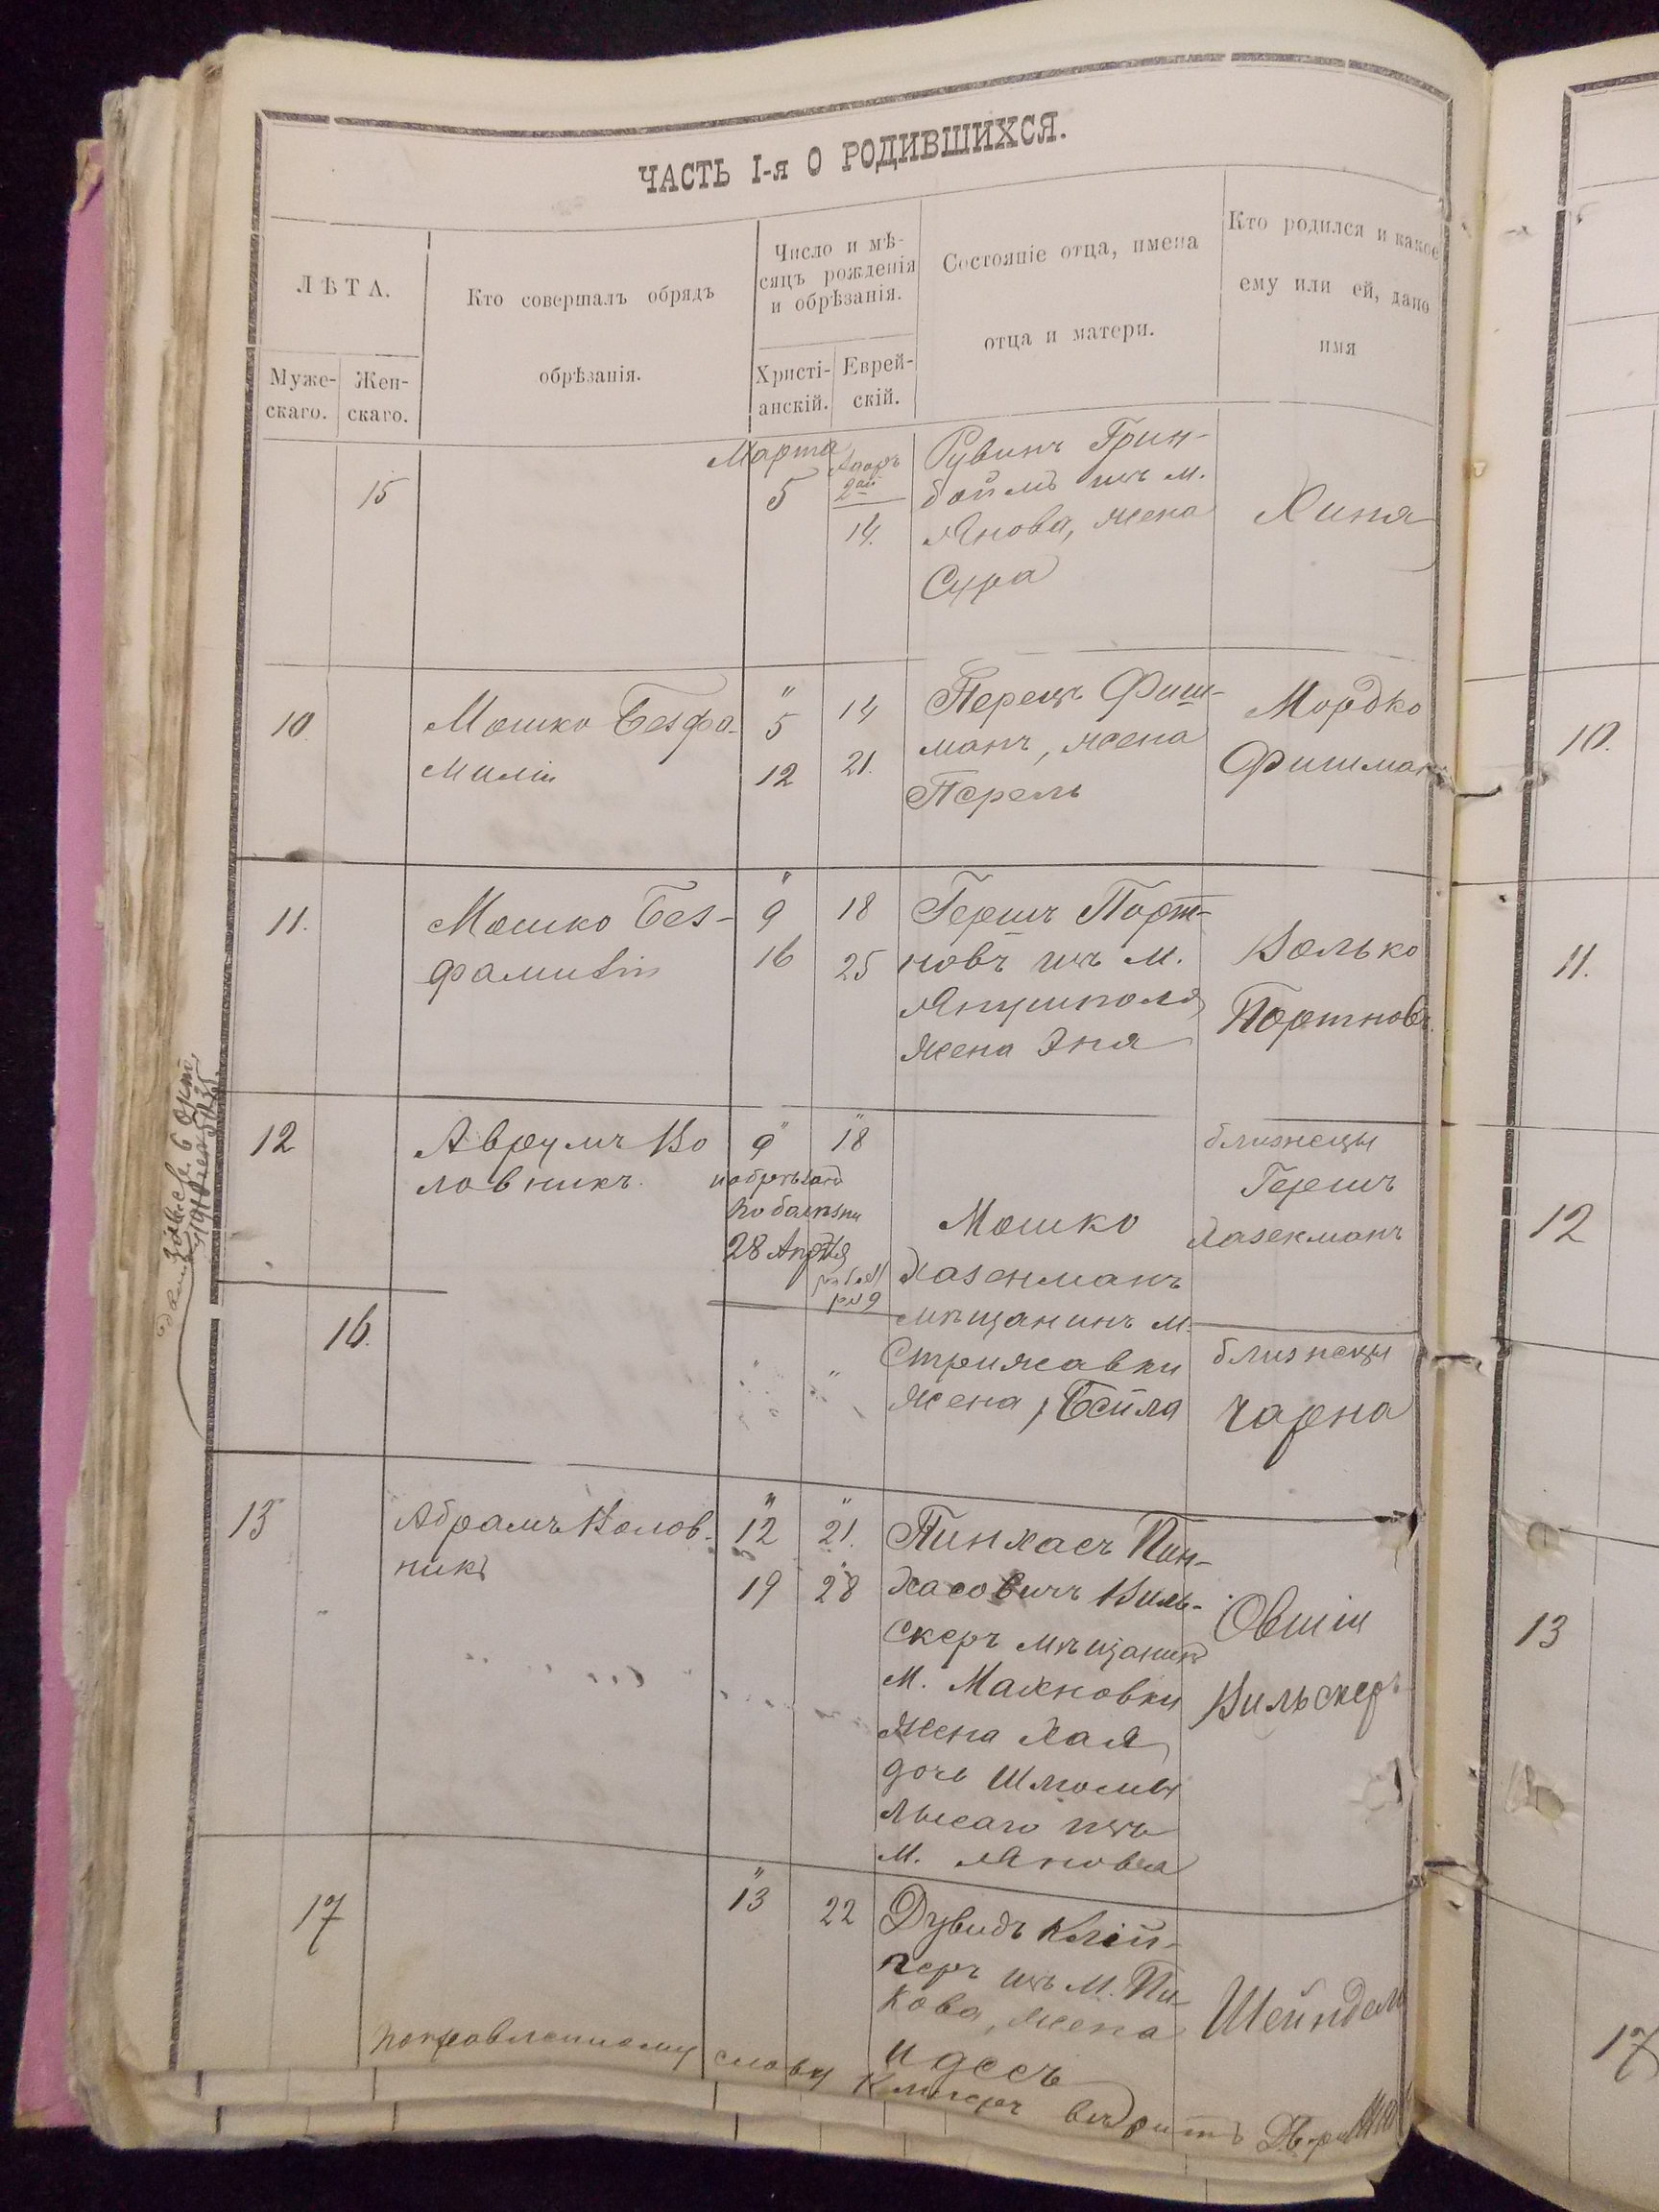 ЧАСТЬ I-я О РОДИВШИХСЯ.
ЛѢТА.
Муже-
скаго.
Жен-
скаго.
Кто совершалъ обрядъ
обрѣзанія.
Число и мѣ-
сяцъ рожденія
и обрѣзанія.
Христі-
анскій.
Еврей-
скій.
Состояніе отца, имена
отца и матери.
Кто родился и какое
ему или ей, дано
имя
15
Марта
5
Адаръ
2ой
14.
Рувинъ Грин-
боймъ изъ м.
Янова, жена
Сура
Хиня
10
Мошко Безфа-
миліи
"
5
12
14
21.
Перецъ Фиш-
манъ, жена
Перель
Мордко
Фишман
10.
11.
Мошко Без-
фамиліи
"
9
16
18
25
Гершъ Порт-
новъ изъ м.
Янушполя,
жена Эня
Волько
Портновъ
11.
12
Аврумъ Во
ловникъ.
9"
18"
необрѣзанъ
по болѣзни
28 Апрѣля
близнецы
Гершъ
Хазенманъ
12
16.
Мошко
Хазенманъ
мѣщанинъ м.
Стрижавки
жена, Бейла
близнецы
Чарна
13
Абрамъ Волов-
никъ
"
12
19
"
21.
28
Пинхасъ Пин-
хасовичъ Виль-
скеръ мѣщанинъ
м. Махновки
жена Хая,
дочь Шлиомы
Лысаго изъ
м. Янова
Овшія
Вильскеръ
13
17
"
13
22
Дувидъ Клей-
неръ изъ м. Пи-
кова, жена
Идесъ
Шейндель
17
словy